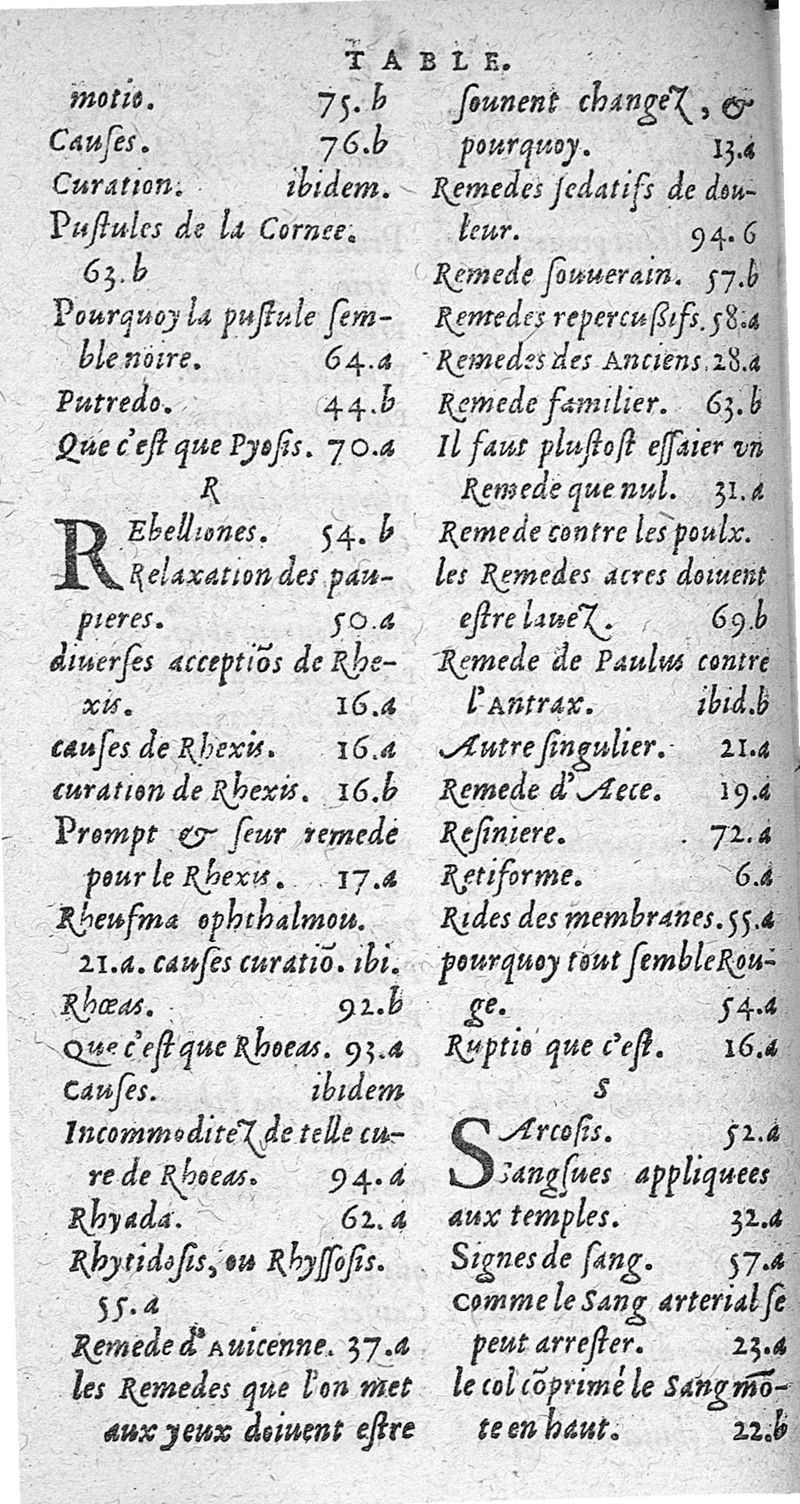 TABLE.
motio. 75. b
Cauſes. 76.b
Curation. ibidem.
Puſtules de la Cornee.
63.b
Pourquoy la puſtule ſem-
ble noire. 64.a
Putredo. 44.b
Que c'eſt que Pyoſis. 70.a
R
REbelliones. 54. b
Relaxation des pau-
pieres. 50.a
diuerſes acceptiõs de Rhe-
xis. 16.a
cauſes de Rhexis. 16.a
curation de Rhexis. 16.b
Prompt & ſeur remede
pour le Rhexis. 17.a
Rheuſma ophthalmou.
21.a. cauſes curatiõ. ibi.
Rhœas. 92.b
Que c'eſt que Rhoeas. 93.a
Cauſes. ibidem
Incommoditez de telle cu-
re de Rhoeas. 94.a
Rhyada. 62.a
Rhytidoſis, ou Rhyſſoſis.
55.a
Remede d'Auicenne. 37.a
les Remedes que l'on met
aux yeux doiuent eſtre
ſouuent changez, &
pourquoy. 13.a
Remedes ſedatifs de dou-
leur. 94.6
Remede ſouuerain. 57.b
Remedes repercuſſifs. 58.a
Remedes des Anciens. 28.a
Remede familier. 63.b
Il faut pluſtoſt eſſaier vn
Remede que nul. 31.a
Remede contre les poulx.
les Remedes acres doiuent
eſtre lauez. 69.b
Remede de Paulus contre
l'Antrax. ibid.b
Autre ſingulier. 21.a
Remede d'Aece. 19.a
Reſiniere. 72.a
Retiforme. 6.a
Rides des membranes. 55.a
pourquoy tout ſemble Rou-
ge. 54.a
Ruptio que c'eſt. 16.a
S
SArcoſis. 52.a
Sangſues appliquees
aux temples. 32.a
Signes de ſang. 57.a
Comme le Sang arterial ſe
peut arreſter. 23.a
le col cõprimé le Sang mõ-
te en haut. 22.b